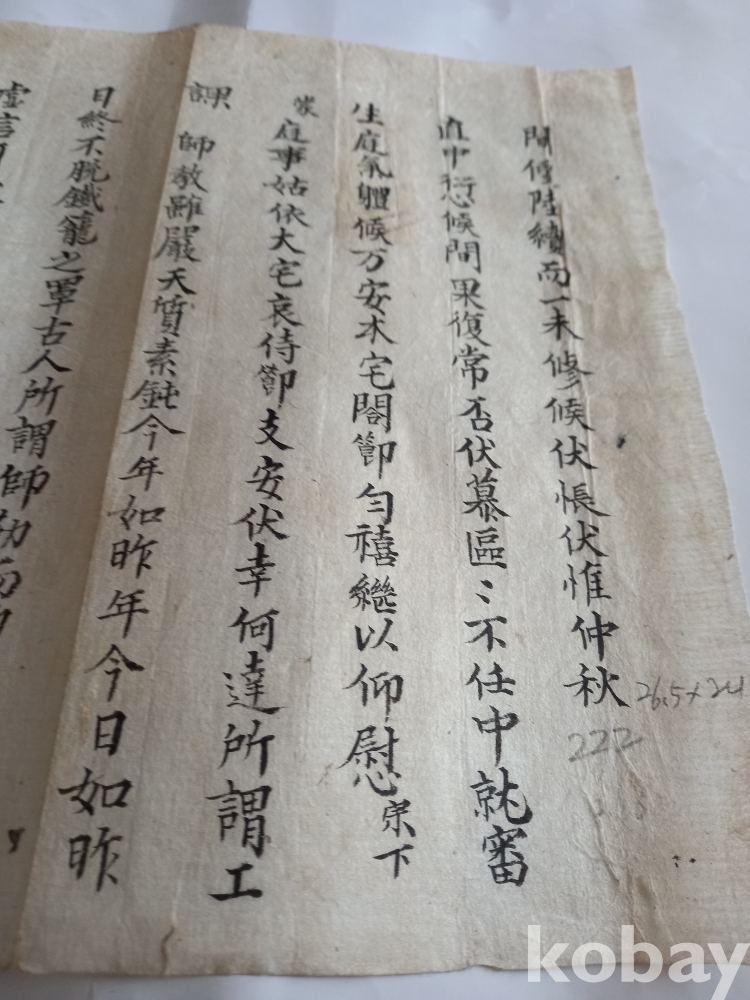 間傳陸續而一未修候伏悵伏惟仲秋
直中行候間果復常否伏慕區〻不任中就審
生庭氣軆候万安本宅閤節勻禧継以仰慰宗下
庭事姑依大宅哀侍節支安伏幸何達所謂工
課師教雖嚴天質素鈍今年如昨年今日如昨
日終不脫鐵籠之罩古人所謂師勤而
虛言
26.5×24
222
kobay